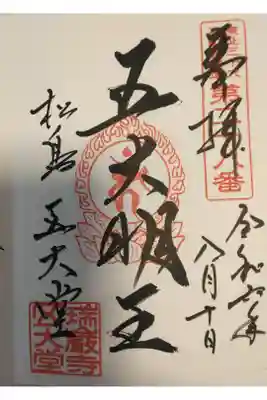 奉拝
令和六年
八月十日
五大明王
松島 五大堂
瑞巌寺
五大堂